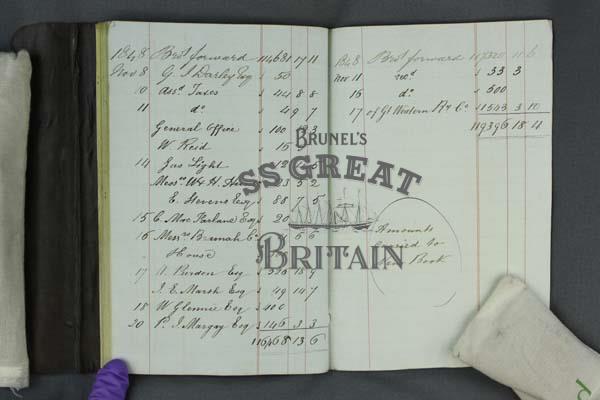 1848 Brot forward 114631 17 11
Nov 8 G. S. Darley Esq " 50
10 Assd Taxes " 44 8 8
11 do. " 49 7
General Office " 100
W. Reid " 16
14 Gas Light " 12
Messrs W & H. 23 5 2
E. Stevens Esq " 88 7 5
15 C. Mac Farlane Esq " 20
16 Messrs Bramah Co 5 6
House
17 Burdon Esq " 320 18 9
J. E. Marsh Esq " 49 14 7
18 W Glennie Esq " 400
20 P. J. Margay Esq " 146 3 3
116468 13 6
1848 Brot forward 11 6
Nov 11 recd " 33 3
16 do. " 500
17 of Gt Western Ry Co. " 1543 3 10
119396 18 4
Amounts
carried to
New Book
BRUNEL'S
SS GREAT
BRITAIN